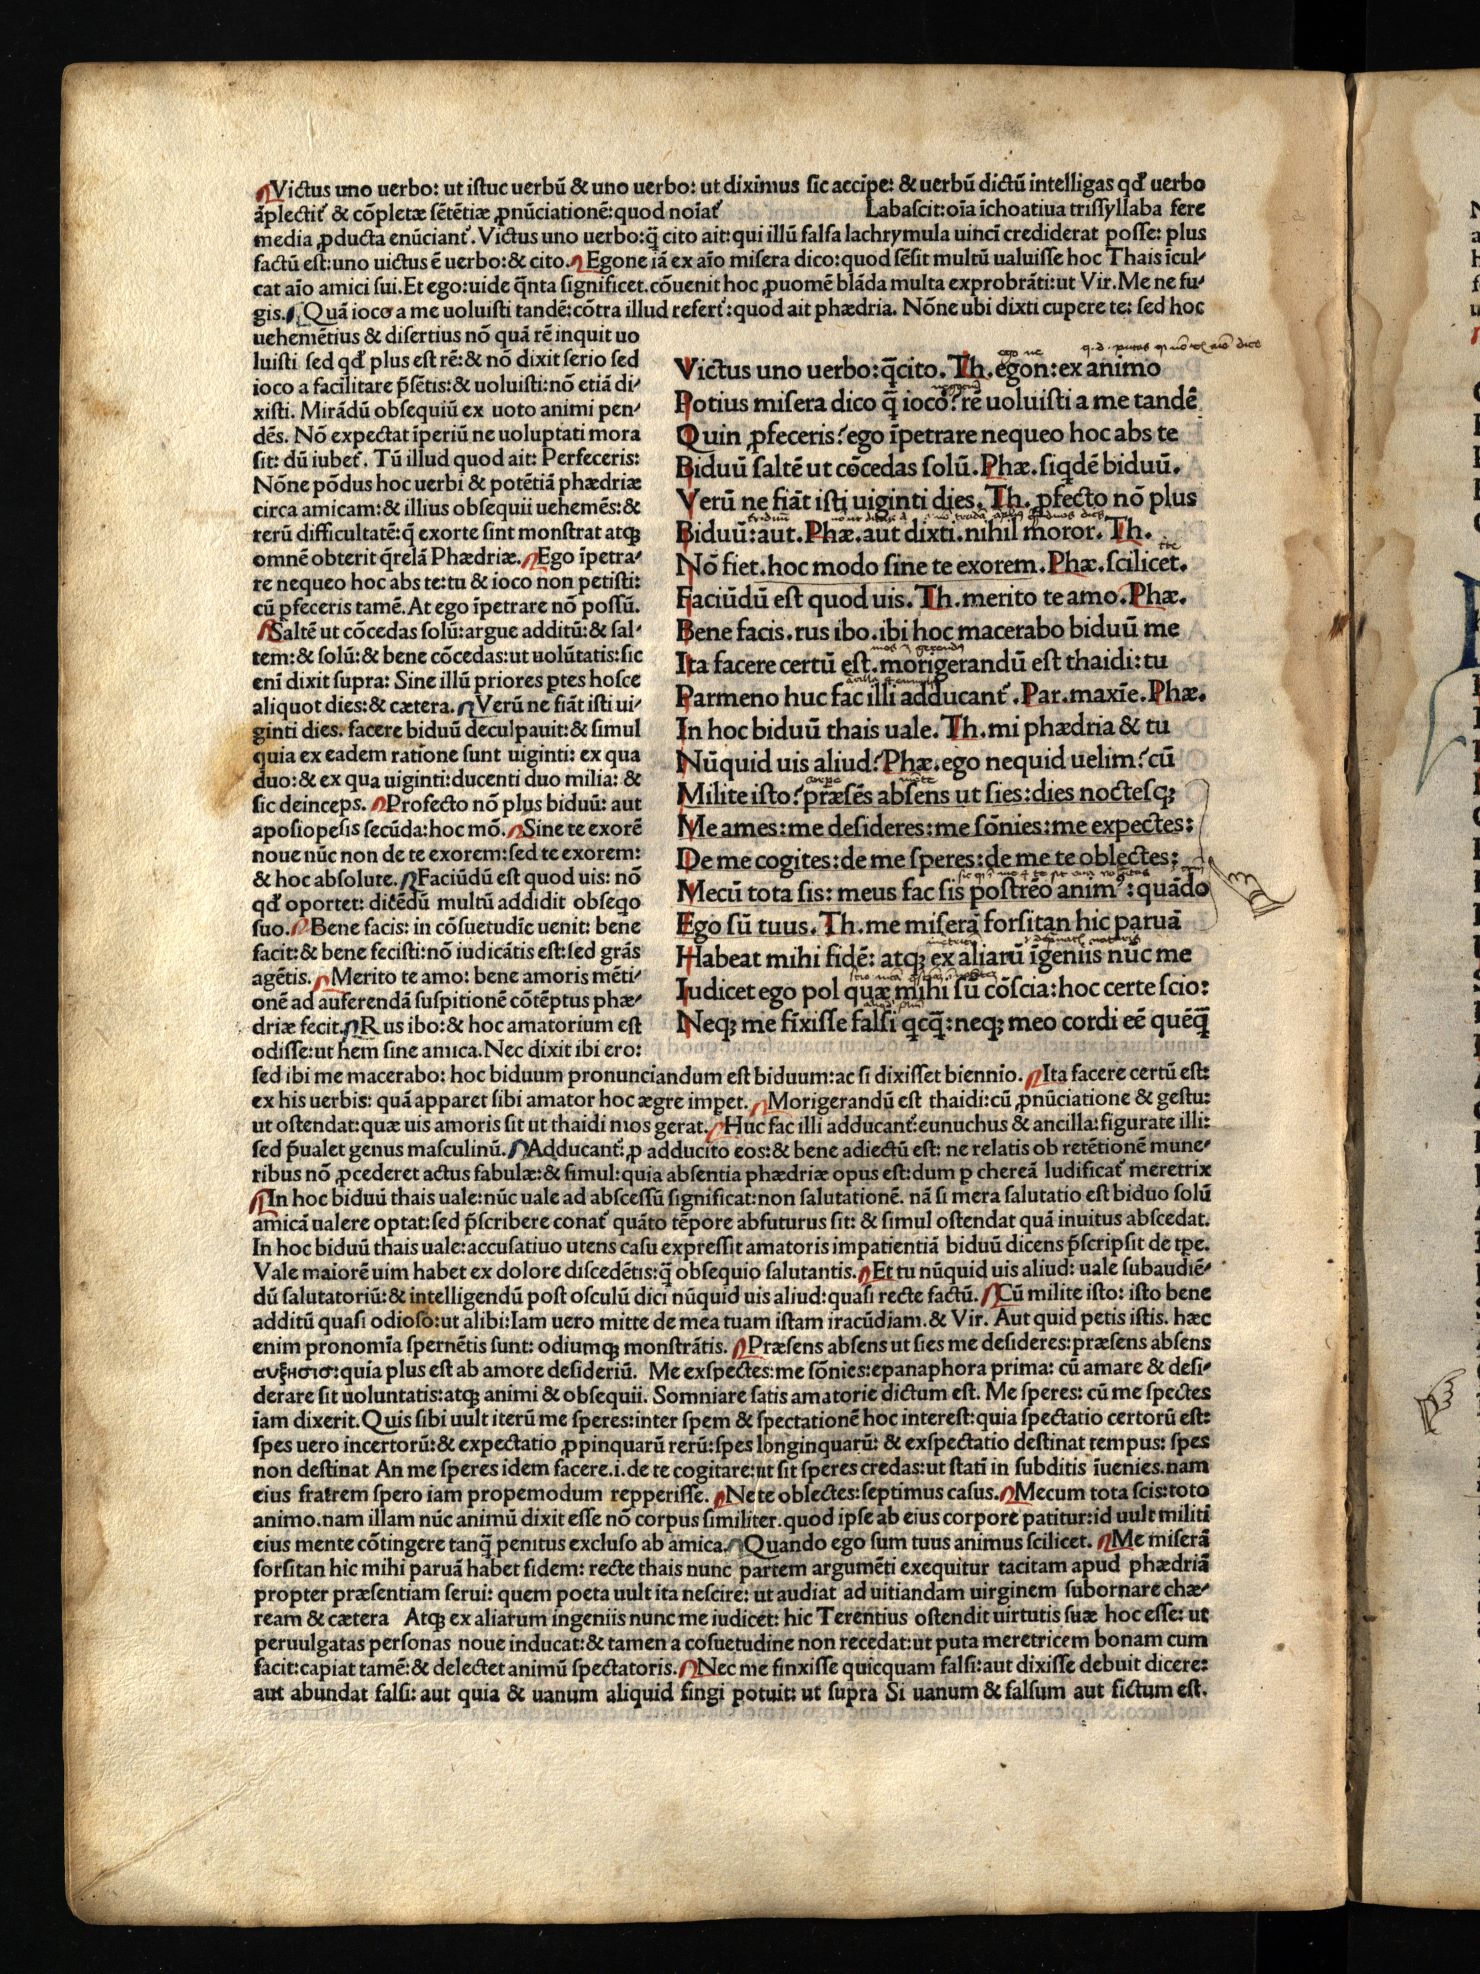 Victus uno uerbo: ut iſtuc uerbũ & uno uerbo: ut diximus ſic accipe: & uerbũ dictũ intelligas qđ uerbo
ãplectit᷑ & cõpletæ ſẽtẽtiæ ꝓnũciationẽ: quod noĩat᷑ Labaſcit: oĩa ĩchoatiua triſſyllaba fere
media ꝓducta enũciant᷑. Victus uno uerbo: q̃ cito ait: qui illũ falſa lachrymula uincĩ crediderat poſſe: plus
factũ eſt: uno uictus ẽ uerbo: & cito. Egone iã ex aĩo miſera dico: quod ſẽſit multũ ualuiſſe hoc Thais ĩcul⸗
cat aĩo amici ſui. Et ego: uide q̃nta ſignificet. cõuenit hoc ꝓuomẽ blãda multa exprobrãti: ut Vir. Me ne fu⸗
gis. Quã ioco a me uoluiſti tandẽ: cõtra illud refert᷑: quod ait phædria. Nõne ubi dixti cupere te: ſed hoc
uehemẽtius & diſertius nõ quã rẽ inquit uo
luiſti ſed qđ plus eſt rẽ: & nõ dixit ſerio ſed
ioco a facilitare p̃ſẽtis: & uoluiſti: nõ etiã di⸗
xiſti. Mirãdũ obſequiũ ex uoto animi pen⸗
dẽs. Nõ expectat ĩperiũ ne uoluptati mora
ſit: dũ iubet᷑. Tũ illud quod ait: Perfeceris:
Nõne põdus hoc uerbi & potẽtiã phædriæ
circa amicam: & illius obſequii uehemẽs: &
rerũ difficultatẽ: q̃ exorte ſint monſtrat atqꝫ
omnẽ obterit q̃relã Phædriæ. Ego ĩpetra⸗
re nequeo hoc abs te: tu & ioco non petiſti:
cũ ꝑfeceris tamẽ. At ego ĩpetrare nõ poſſũ.
Saltẽ ut cõcedas ſolũ: argue additũ: & ſal⸗
tem: & ſolũ: & bene cõcedas: ut uolũtatis: ſic
enĩ dixit ſupra: Sine illũ priores ꝑtes hoſce
aliquot dies: & cætera. Verũ ne fiãt iſti ui⸗
ginti dies. facere biduũ deculpauit: & ſimul
quia ex eadem ratione ſunt uiginti: ex qua
duo: & ex qua uiginti: ducenti duo milia: &
ſic deinceps. Profecto nõ plus biduũ: aut
apoſiopeſis ſecũda: hoc mõ. Sine te exorẽ
noue nũc non de te exorem: ſed te exorem:
& hoc abſolute. Faciũdũ eſt quod uis: nõ
qđ oportet: dicẽdũ multũ addidit obſeqo
ſuo. Bene facis: in cõſuetudĩe uenit: bene
facit: & bene feciſti: nõ iudicãtis eſt: ſed grãs
agẽtis. Merito te amo: bene amoris mẽti⸗
onẽ ad auferendã ſuſpitionẽ cõtẽptus phæ⸗
driæ fecit. Rus ibo: & hoc amatorium eſt
odiſſe: ut hem ſine amica. Nec dixit ibi ero:
Victus uno uerbo: q̃cito. Th. egon: ex animo
Potius miſera dico q̃ ioco? rẽ uoluiſti a me tandẽ
Quin ꝓfeceris? ego ĩpetrare nequeo hoc abs te
Biduũ ſaltẽ ut cõcedas ſolũ. Phæ. ſiqdẽ biduũ.
Verũ ne fiãt iſti uiginti dies. Th. ꝓfecto nõ plus
Biduũ: aut. Phæ. aut dixti. nihil moror. Th.
Nõ fiet. hoc modo ſine te exorem. Phæ. ſcilicet.
Faciũdũ eſt quod uis. Th. merito te amo. Phæ.
Bene facis. rus ibo. ibi hoc macerabo biduũ me
Ita facere certũ eſt. morigerandũ eſt thaidi: tu
Parmeno huc fac illi adducant᷑. Par. maxĩe. Phæ.
In hoc biduũ thais uale. Th. mi phædria & tu
Nũquid uis aliud? Phæ. ego nequid uelim? cũ
Milite iſto? præſẽs abſens ut ſies: dies noctesqꝫ
Me ames: me deſideres: me ſõnies: me expectes:
De me cogites: de me ſperes: de me te oblectes:
Mecũ tota ſis: meus fac ſis poſtreo animꝰ: quãdo
Ego ſũ tuus. Th. me miſerã forſitan hic paruã
Habeat mihi fidẽ: atqꝫ ex aliarũ ĩgeniis nũc me
Iudicet ego pol quæ mihi ſũ cõſcia: hoc certe ſcio:
Neqꝫ me fixiſſe falſi qcq̃: neqꝫ meo cordi eẽ quẽq̃
ſed ibi me macerabo: hoc biduum pronunciandum eſt biduum: ac ſi dixiſſet biennio. Ita facere certũ eſt:
ex his uerbis: quã apparet ſibi amator hoc ægre imꝑet. Morigerandũ eſt thaidi: cũ ꝓnũciatione & geſtu:
ut oſtendat: quæ uis amoris ſit ut thaidi mos gerat. Huc fac illi adducant᷑: eunuchus & ancilla: figurate illi:
ſed p̃ualet genus maſculinũ. Adducant᷑: ꝓ adducito eos: & bene adiectũ eſt: ne relatis ob retẽtionẽ mune⸗
ribus nõ ꝓcederet actus fabulæ: & ſimul: quia abſentia phædriæ opus eſt: dum ꝑ chereã ludificat᷑ meretrix
In hoc biduũ thais uale: nũc uale ad abſceſſũ ſignificat: non ſalutationẽ. nã ſi mera ſalutatio eſt biduo ſolũ
amicã ualere optat: ſed p̃ſcribere conat᷑ quãto tẽpore abfuturus ſit: & ſimul oſtendat quã inuitus abſcedat.
In hoc biduũ thais uale: accuſatiuo utens caſu expreſſit amatoris impatientiã biduũ dicens p̃ſcripſit de tpe.
Vale maiorẽ uim habet ex dolore diſcedẽtis: q̃ obſequio ſalutantis. Et tu nũquid uis aliud: uale ſubaudiẽ⸗
dũ ſalutatoriũ: & intelligendũ poſt oſculũ dici nũquid uis aliud: quaſi recte factũ. Cũ milite iſto: iſto bene
additũ quaſi odioſo: ut alibi: Iam uero mitte de mea tuam iſtam iracũdiam. & Vir. Aut quid petis iſtis. hæc
enim pronomĩa ſpernẽtis ſunt: odiumqꝫ monſtrãtis. Præſens abſens ut ſies me deſideres: præſens abſens
αυξησισ: quia plus eſt ab amore deſideriũ. Me exſpectes: me ſõnies: epanaphora prima: cũ amare & deſi⸗
derare ſit uoluntatis: atqꝫ animi & obſequii. Somniare ſatis amatorie dictum eſt. Me ſperes: cũ me ſpectes
ĩam dixerit. Quis ſibi uult iterũ me ſperes: inter ſpem & ſpectationẽ hoc intereſt: quia ſpectatio certorũ eſt:
ſpes uero incertorũ: & expectatio ꝓpinquarũ rerũ: ſpes longinquarũ: & exſpectatio deſtinat tempus: ſpes
non deſtinat An me ſperes idem facere. i. de te cogitare: ut ſit ſperes credas: ut ſtatĩ in ſubditis ĩuenies. nam
eius fratrem ſpero iam propemodum repperiſſe. Ne te oblectes: ſeptimus caſus. Mecum tota ſcis: toto
animo. nam illam nũc animũ dixit eſſe nõ corpus ſimiliter. quod ipſe ab eius corpore patitur: id uult militĩ
eius mente cõtingere tanq̃ penitus excluſo ab amica. Quando ego ſum tuus animus ſcilicet. Me miſerã
forſitan hic mihi paruã habet fidem: recte thais nunc partem argumẽti exequitur tacitam apud phædriã
propter præſentiam ſerui: quem poeta uult ita neſcire: ut audiat ad uitiandam uirginem ſubornare chæ⸗
ream & cætera Atqꝫ ex aliarum ingeniis nunc me iudicet: hic Terentius oſtendit uirtutis ſuæ hoc eſſe: ut
peruulgatas perſonas noue inducat: & tamen a coſuetudine non recedat: ut puta meretricem bonam cum
facit: capiat tamẽ: & delectet animũ ſpectatoris. Nec me finxiſſe quicquam falſi: aut dixiſſe debuit dicere:
aut abundat falſi: aut quia & uanum aliquid fingi potuit: ut ſupra Si uanum & falſum aut fictum eſt.